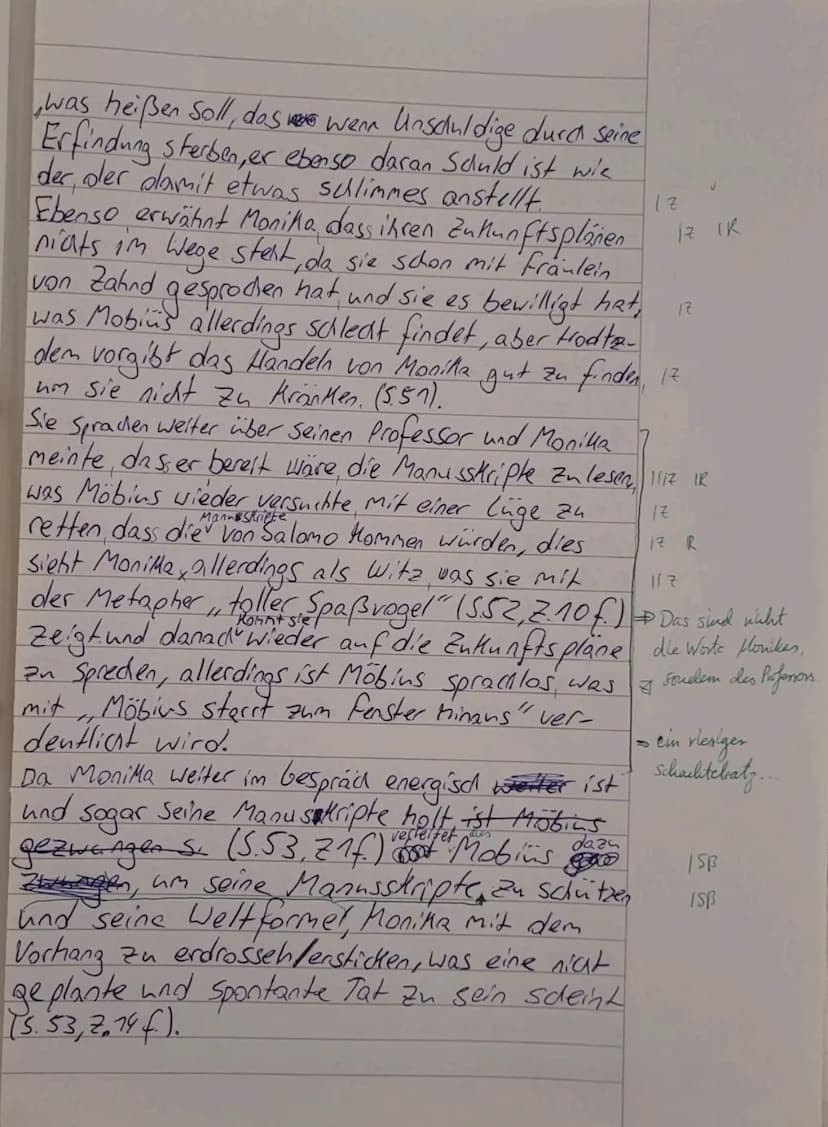 , was heißen soll, das wenn Unschuldige durch seine
Erfindung sterben, er ebenso daran Schuld ist wie
der, der damit etwas schlimmes anstellt.
| Z
Ebenso erwähnt Monika, dass ihren Zukunftsplänen
| Z | R
nichts im Wege steht, da sie schon mit Fräulein
von Zahnd gesprochen hat und sie es bewilligt hat,
| Z
was Mobiüs allerdings schlecht findet, aber trotz-
dem vorgibt das Handeln von Monika gut zu finden,
| Z
um sie nicht zu kränken. (S.51).
Sie sprachen weiter über seinen Professor und Monika
meinte, dass er bereit wäre, die Manusskripte zu lesen,
|| Z | R
was Möbius wieder versuchte mit einer Lüge zu
| Z
retten, dass die Manuskripte von Salomo kommen würden, dies
| Z R
sieht Monika, allerdings als Witz, was sie mit
|| Z
der Metapher „toller Spaßvogel" (S.52, Z.10 f.)
⇒ Das sind nicht
zeigt und danach kommt sie wieder auf die Zukunftspläne
die Worte Monikas,
zu sprechen, allerdings ist Möbius sprachlos, was
sondern des Professors
mit „Möbius starrt zum Fenster hinaus" ver-
deutlicht wird.
⇒ ein riesiger
Schachtelsatz...
Da Monika weiter im Gespräch energisch weiter ist
und sogar seine Manuskripte holt ist Möbius
gezwungen s. (S.53, Z.1f.) verleitet dies Mobiüs dazu
| SB
zwungen, um seine Manusskripte, zu schützen
| SB
und seine Weltformel, Monika mit dem
Vorhang zu erdrosseln/ersticken, was eine nicht
geplante und spontante Tat zu sein scheint
(S. 53, Z. 14 f.).